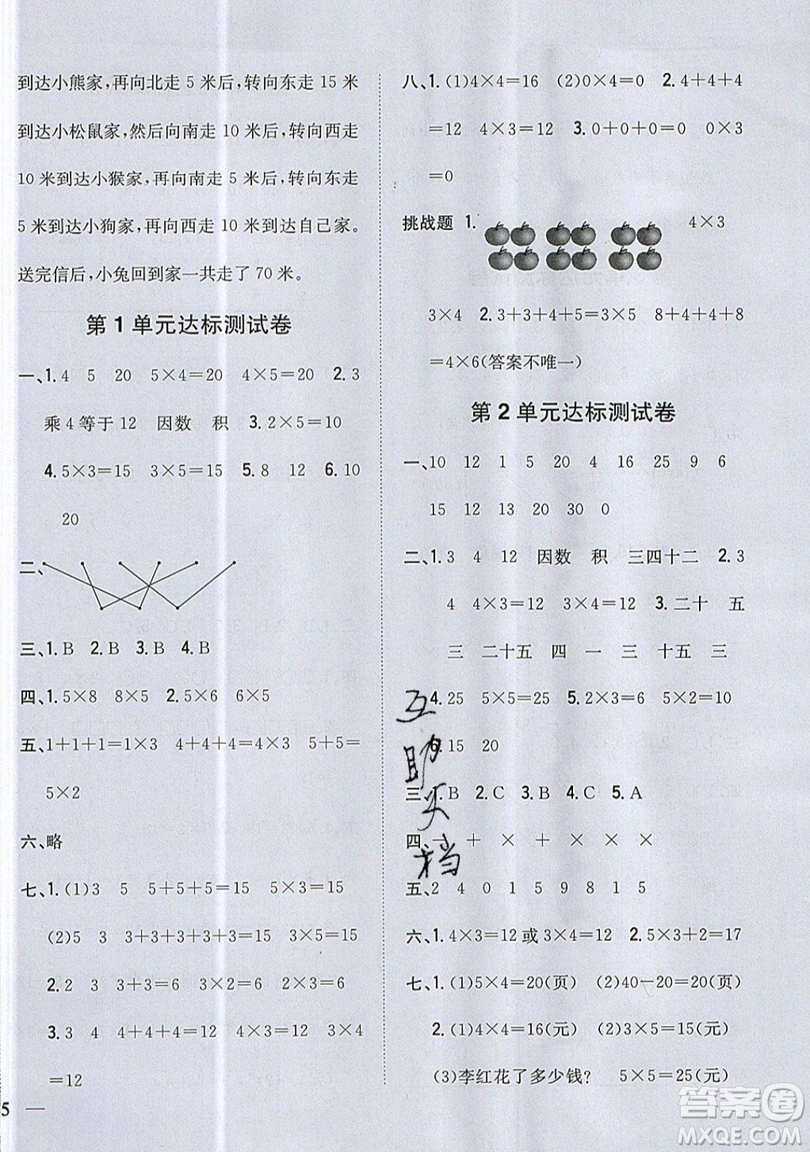 到达小熊家，再向北走 5 米后，转向东走 15 米
到达小松鼠家，然后向南走 10 米后，转向西走
10 米到达小猴家，再向南走 5 米后，转向南走
5 米到达小狗家，再向西走 10 米到达自己家。
送完信后，小兔回到家一共走了 70 米。
第 1 单元达标测试卷
一、1. 4 5 20 5×4=20 4×5=20 2. 3
乘 4 等于 12 因数 积 3. 5×2=10
4. 5×3=15 3×5=15 5. 8 12 6. 10
20
二、
三、1. B 2. B 3. B 4. B
四、1. 5×8 8×5 2. 5×6 6×5
五、1+1+1=1×3 4+4+4=4×3 5+5=
5×2
六、略
七、1. (1)3 5 5+5+5=15 5×3=15
(2)5 3 3+3+3+3+3=15 3×5=15
2. 2 3 3+3=6 3×2=6 2×3=6
3. 3 4 4+4+4=12 4×3=12 3×4
=12
5
八、1. (1)4×4=16 (2)0×4=0 2. 4+4+4
=12 4×3=12 3. 0+0+0=0 0×3
=0
挑战题 1. 4×3
3×4 2. 3+3+4+5=5×3 8+4+4+8
=4×6(答案不唯一)
第 2 单元达标测试卷
一、10 12 1 5 20 4 16 25 9 6
15 12 5 20 30 0
二、1. 3 4 12 因数 积 三四十二 2. 3
4 4×3=12 3×4=12 3. 二十 五
三 二十五 四 一 三 十五 三
4. 25 5×5=25 5. 2×3=6 5×2=10
6. 15 20
三、1. B 2. C 3. B 4. C 5. A
四、- + × × × ×
五、2 4 0 1 5 9 8 1 5
六、1. 4×3=12 或 3×4=12 2. 5×3+2=17
七、1. (1)5×4=20(页) (2)40-20=20(页)
2. (1)4×4=16(元) (2)3×5=15(元)
(3)李红花了多少钱? 5×5=25(元)
互助文档
答案圈
MXQE.COM